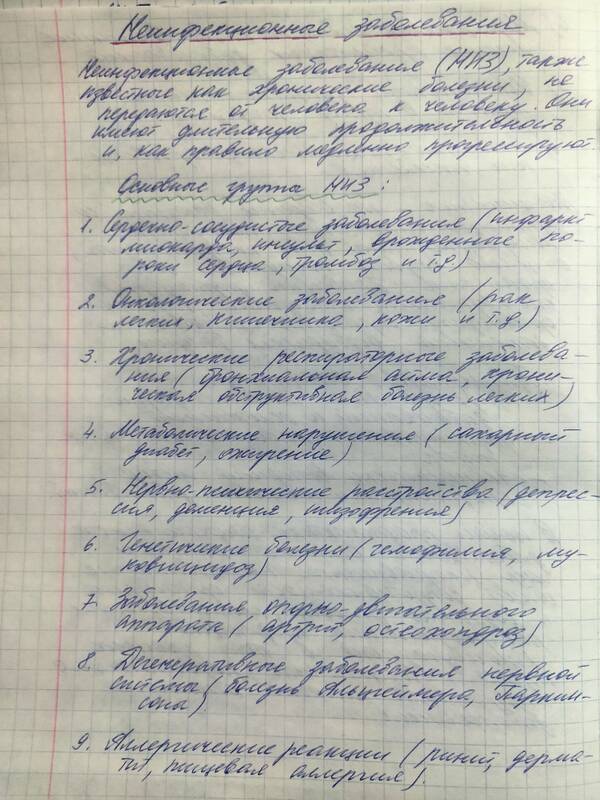 Неинфекционные заболевания
Неинфекционные заболевания (НИЗ), также
известные как хронические болезни, не
передаются от человека к человеку. Они
имеют длительную продолжительность
и, как правило медленно прогрессируют.
Основные группы НИЗ:
1. Сердечно-сосудистые заболевания (инфаркт
миокарда, инсульт, врожденные по-
роки сердца, тромбоз и т.д)
2. Онкологические заболевания (рак
легких, кишечника, кожи и т.д.)
3. Хронические респираторные заболева-
ния (бронхиальная астма, хрони-
ческая обструктивная болезнь легких)
4. Метаболические нарушения (сахарный
диабет, ожирение)
5. Нервно-психические расстройства (депрес-
сия, деменция, шизофрения)
6. Генетические болезни (гемофилия, му-
ковисцидоз)
7. Заболевания опорно-двигательного
аппарата (артрит, остеохондроз)
8. Дегенеративные заболевания нервной
системы (болезнь Альцгеймера, Паркин-
соны)
9. Аллергические реакции (ринит, дерма-
тит, пищевая аллергия).